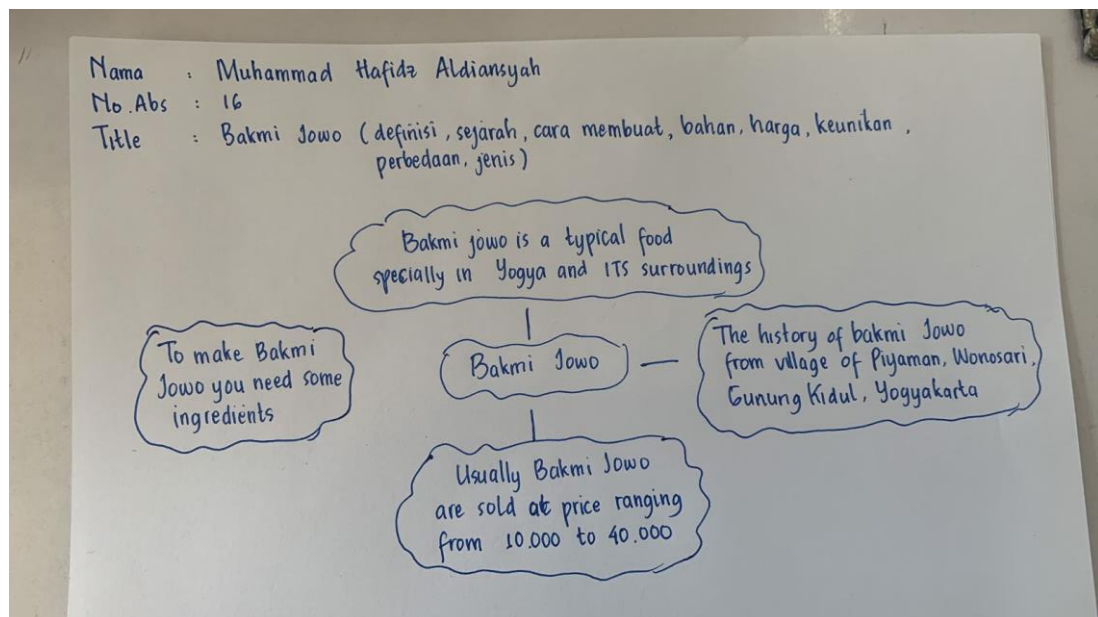 Nama : Muhammad Hafidz Aldiansyah
No.Abs : 16
Title : Bakmi Jowo (definisi, sejarah, cara membuat, bahan, harga, keunikan,
perbedaan, jenis)
Bakmi jowo is a typical food
specially in Yogya and ITS surroundings
To make Bakmi
Jowo you need some
ingredients
Bakmi Jowo
The history of bakmi Jowo
from village of Piyaman, Wonosari,
Gunung Kidul, Yogyakarta
Usually Bakmi Jowo
are sold at price ranging
from 10.000 to 40.000